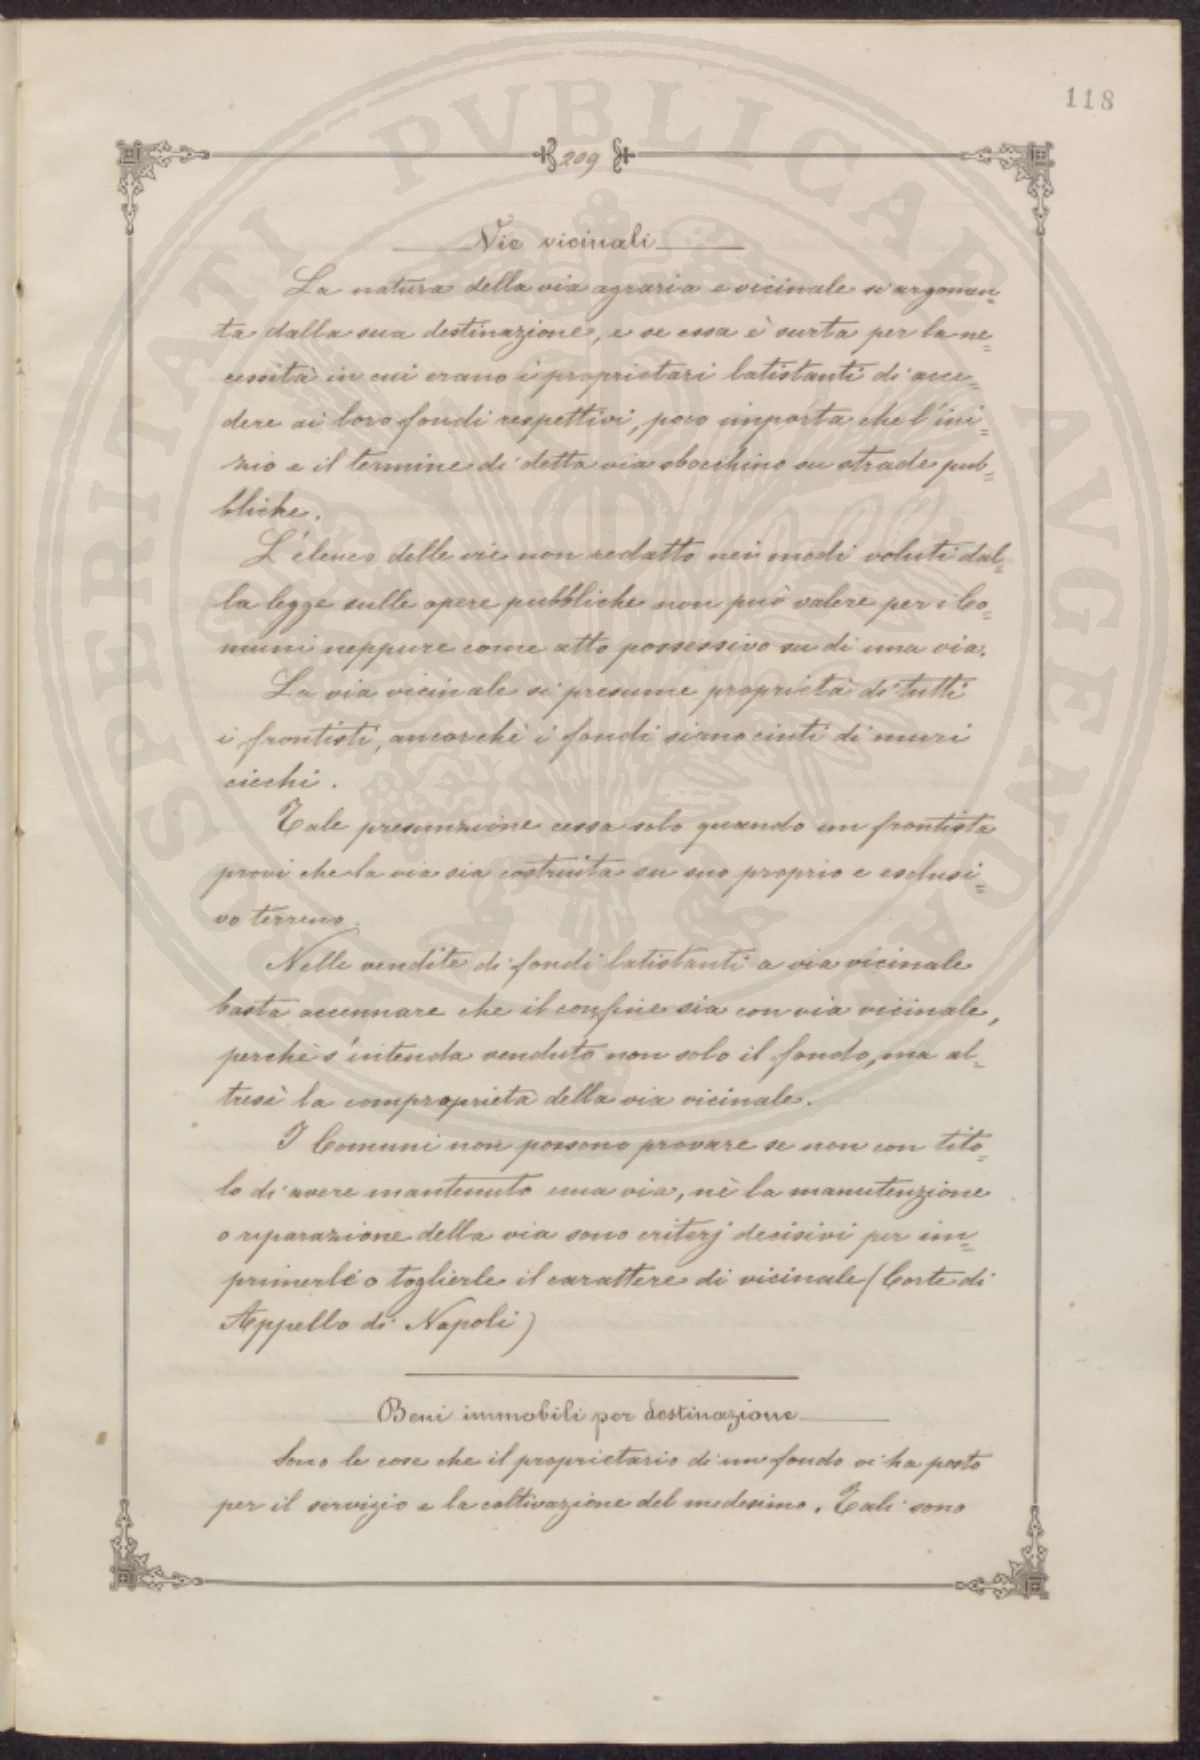 118
209
Vie vicinali
La natura della via agraria e vicinale si argomen=
ta dalla sua destinazione, e se essa è surta per la ne=
cessità in cui erano i proprietari latistanti di acce=
dere ai loro fondi respettivi, poco importa che l'ini=
zio e il termine di detta via sbocchino su strade pub=
bliche.
L'elenco delle vie non redatto nei modi voluti dal=
la legge sulle opere pubbliche non può valere per i Co=
muni neppure come atto possessivo su di una via.
La via vicinale si presume proprietà di tutti
i frontisti, ancorchè i fondi siano cinti di muri
ciechi.
Tale presunzione cessa solo quando un frontista
provi che la via sia costruita su suo proprio e esclusi=
vo terreno.
Nelle vendite di fondi latistanti a via vicinale
basta accennare che il confine sia con via vicinale,
perchè s'intenda venduto non solo il fondo, ma al=
tresì la comproprietà della via vicinale.
I Comuni non possono provare se non con tito=
lo di avere mantenuto una via, nè la manutenzione
o riparazione della via sono criterj decisivi per im=
primerle o toglierle il carattere di vicinale (Corte di
Appello di Napoli)
Beni immobili per destinazione
Sono le cose che il proprietario di un fondo vi ha posto
per il servizio e la coltivazione del medesimo. Tali sono
PROSPERITATI PVBLICAE AVGENDAE